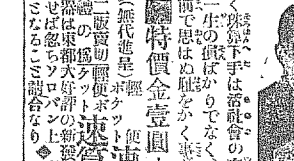 く珠算下手は活社會の
一生の損ばかりでなく
前で思はぬ耻をかく事
特價金壹圓
(無代進呈)
輕便
ポケット
二版賣切輕便ポ
禮の爲ケット
速算
器は東都大好評の新發
せば忽ちソロバン上
となること請合なり